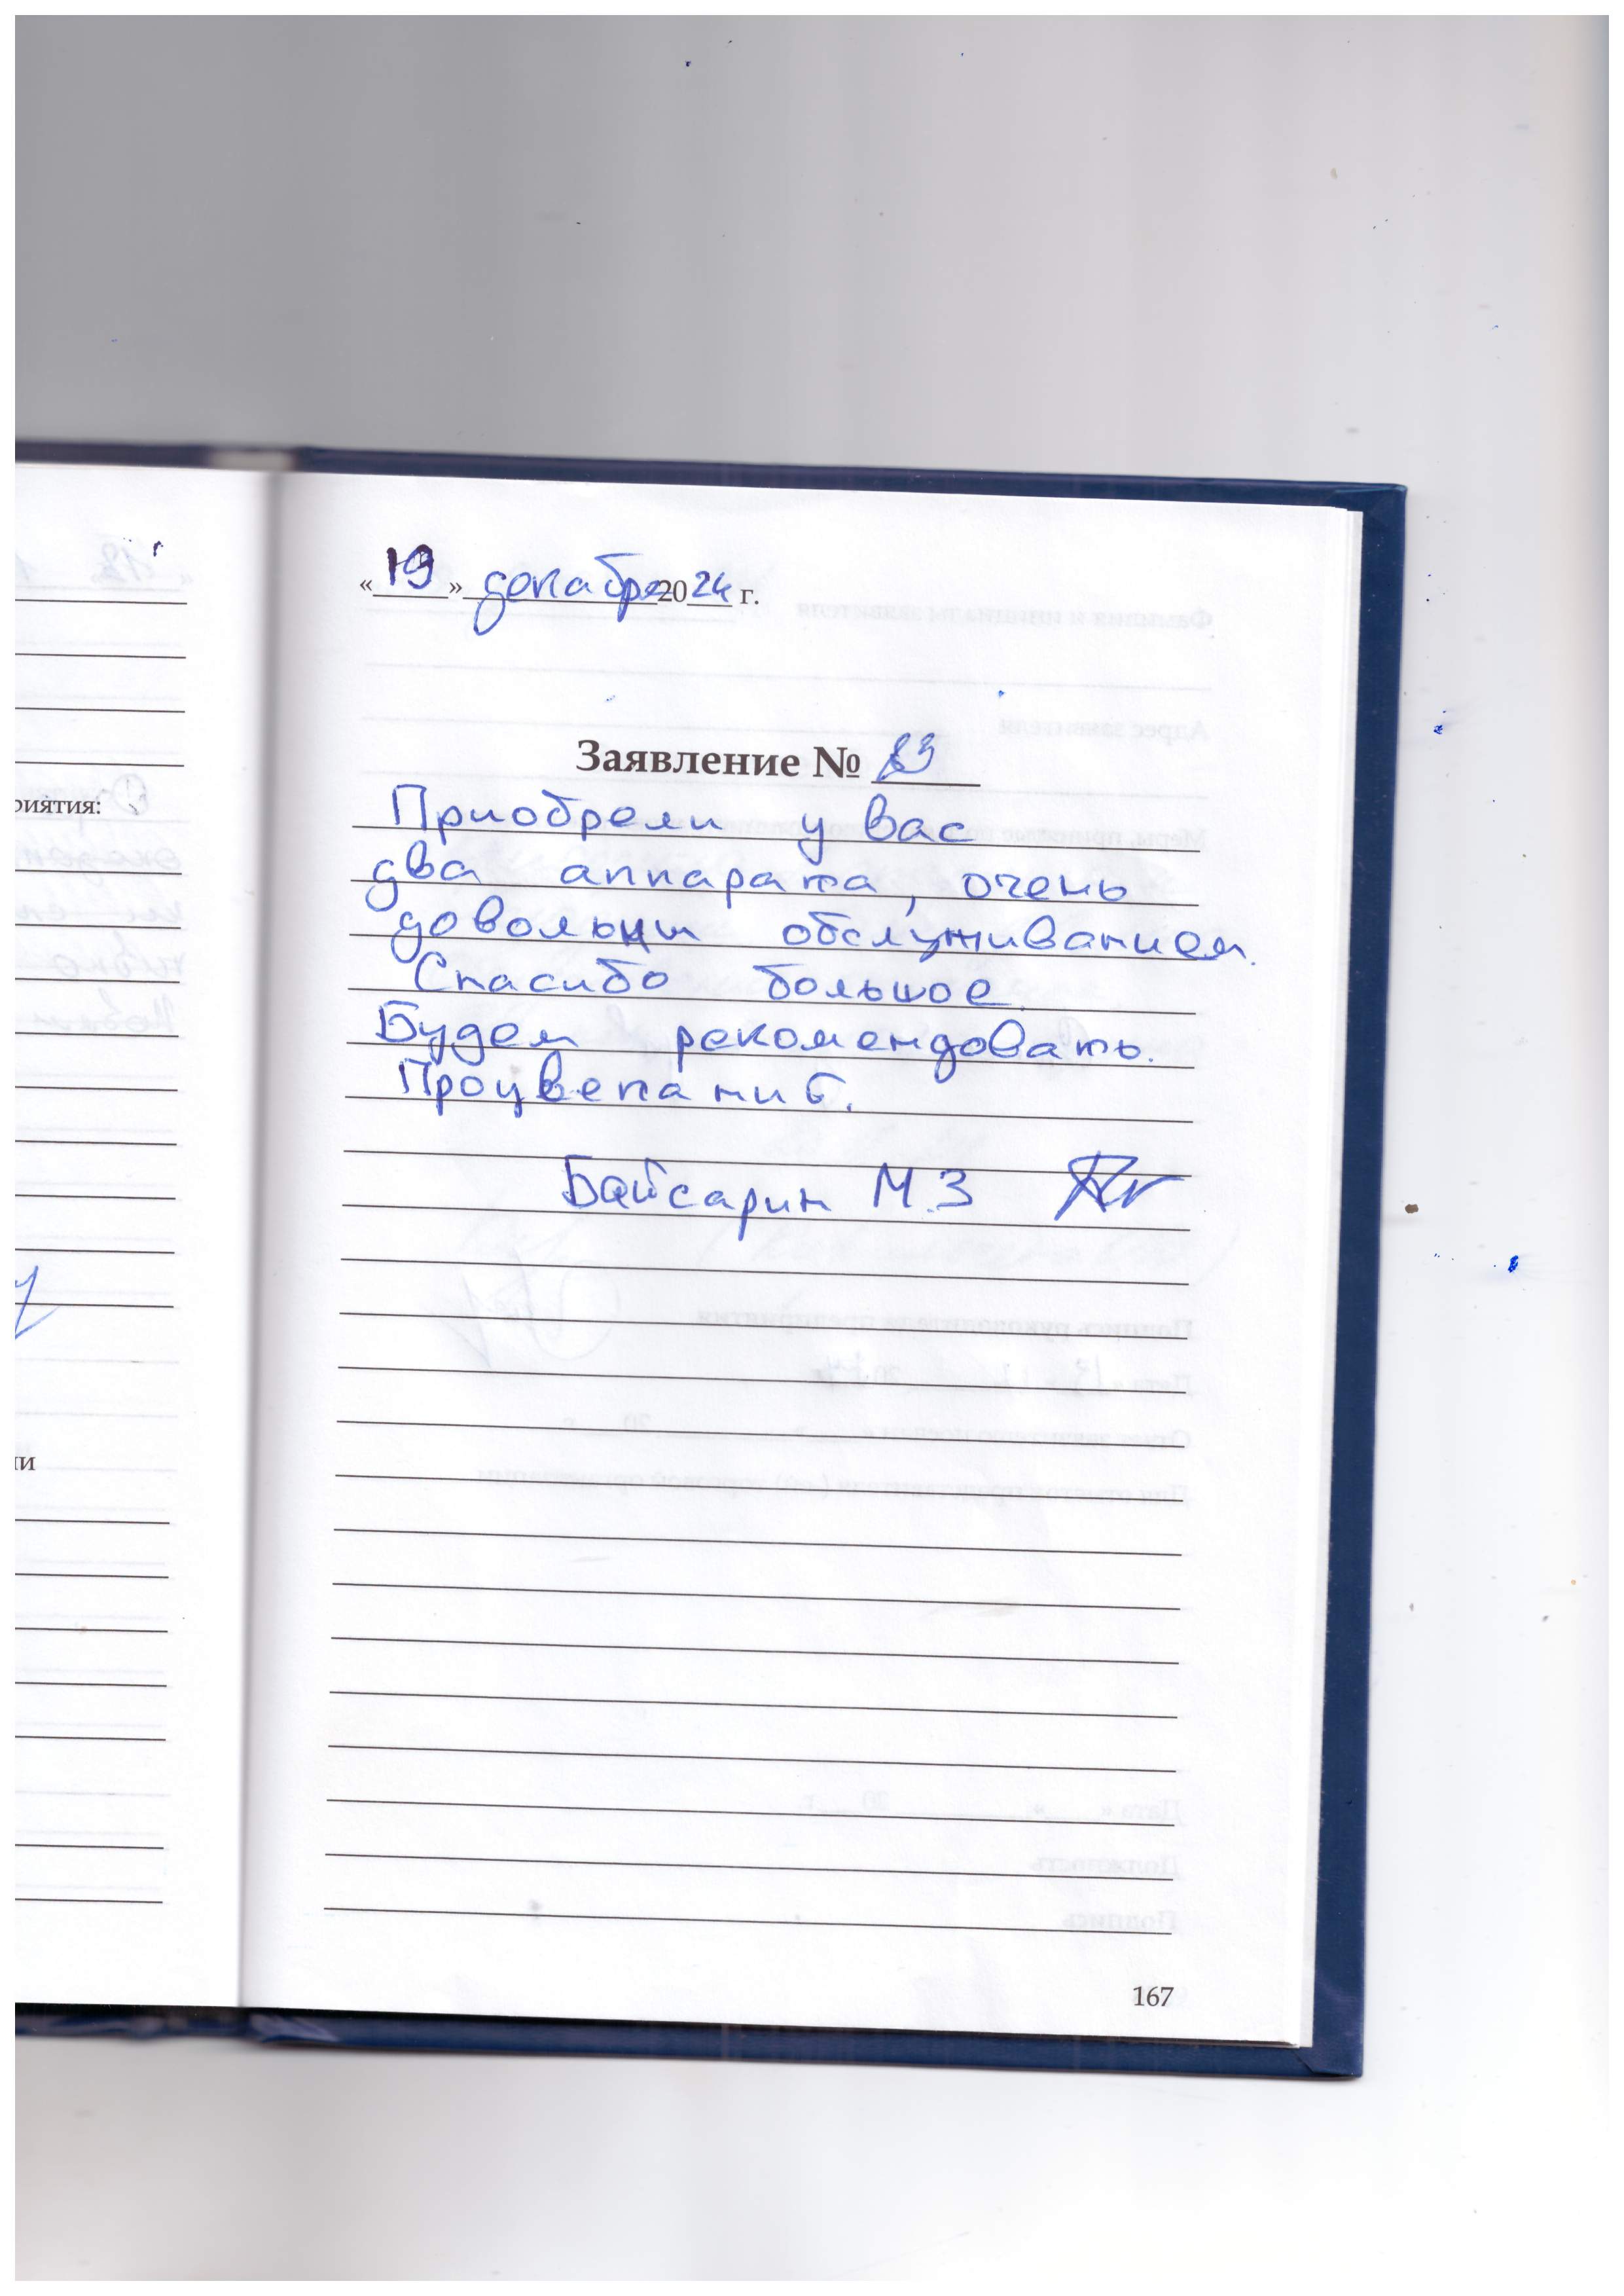 «19» декабря 2024 г.
Заявление № 83
Приобрели у вас
два аппарата, очень
довольны обслуживанием.
Спасибо большое.
Будем рекомендовать.
Процветания.
Байсарин М.З
риятия:
ии
167